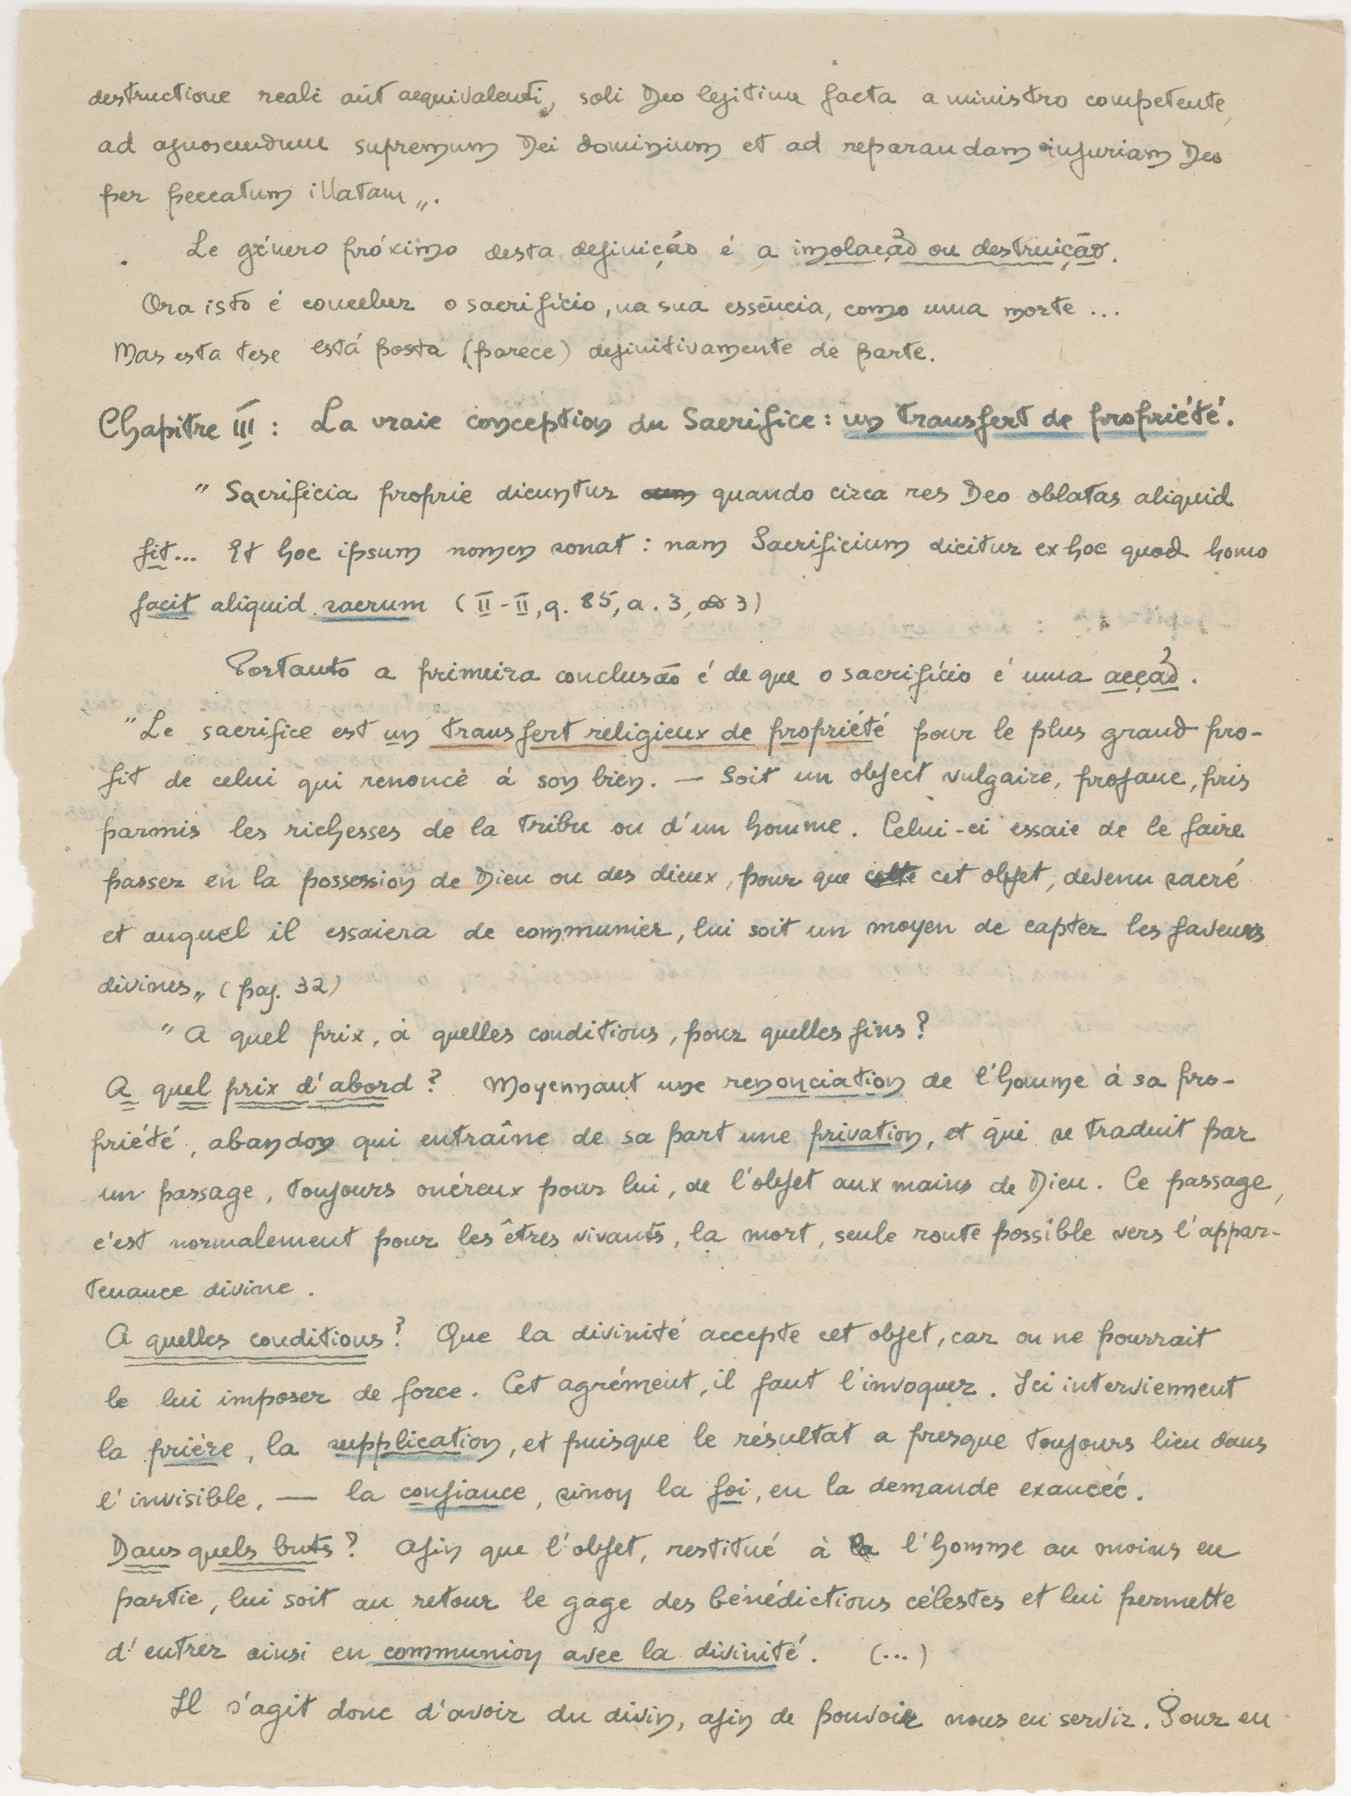 destructione reali aut aequivalenti, soli Deo legitime facta a ministro competente,
ad agnoscendum supremum Dei dominium et ad reparandam injuriam Deo
per peccatum illatam„.
Le género próximo desta definição é a imolação ou destruição.
Ora isto é conceber o sacrifício, na sua essência, como uma morte ...
Mas esta tese está posta (parece) definitivamente de parte.
Chapitre III : La vraie conception du Sacrifice : un transfert de propriété.
" Sacrificia proprie dicuntur quando circa res Deo oblatas aliquid
fit... Et hoc ipsum nomen sonat : nam Sacrificium dicitur ex hoc quod homo
facit aliquid sacrum (II-II, q. 85, a. 3, ad 3)
Portanto a primeira conclusão é de que o sacrifício é uma acção.
"Le sacrifice est un transfert religieux de propriété pour le plus grand pro-
fit de celui qui renonce à son bien. — Soit un object vulgaire, profane, pris
parmis les richesses de la tribu ou d'un homme. Celui-ci essaie de le faire
passer en la possession de Dieu ou des dieux, pour que cet objet, devenu sacré
et auquel il essaiera de communier, lui soit un moyen de capter les faveurs
divines„ (pag. 32)
" A quel prix, à quelles conditions, pour quelles fins ?
A quel prix d'abord ? Moyennant une renonciation de l'homme à sa pro-
priété, abandon qui entraîne de sa part une privation, et qui se traduit par
un passage, toujours onéreux pour lui, de l'objet aux mains de Dieu. Ce passage,
c'est normalement pour les êtres vivants, la mort, seule route possible vers l'appar-
tenance divine.
A quelles conditions ? Que la divinité accepte cet objet, car on ne pourrait
le lui imposer de force. Cet agrément, il faut l'invoquer. Ici interviennent
la prière, la supplication, et puisque le résultat a presque toujours lieu dans
l'invisible, — la confiance, sinon la foi, en la demande exaucée.
Dans quels buts ? Afin que l'objet, restitué à l'homme au moins en
partie, lui soit au retour le gage des bénédictions célestes et lui permette
d'entrer ainsi en communion avec la divinité. (...)
Il s'agit donc d'avoir du divin, afin de pouvoir nous en servir. Pour en